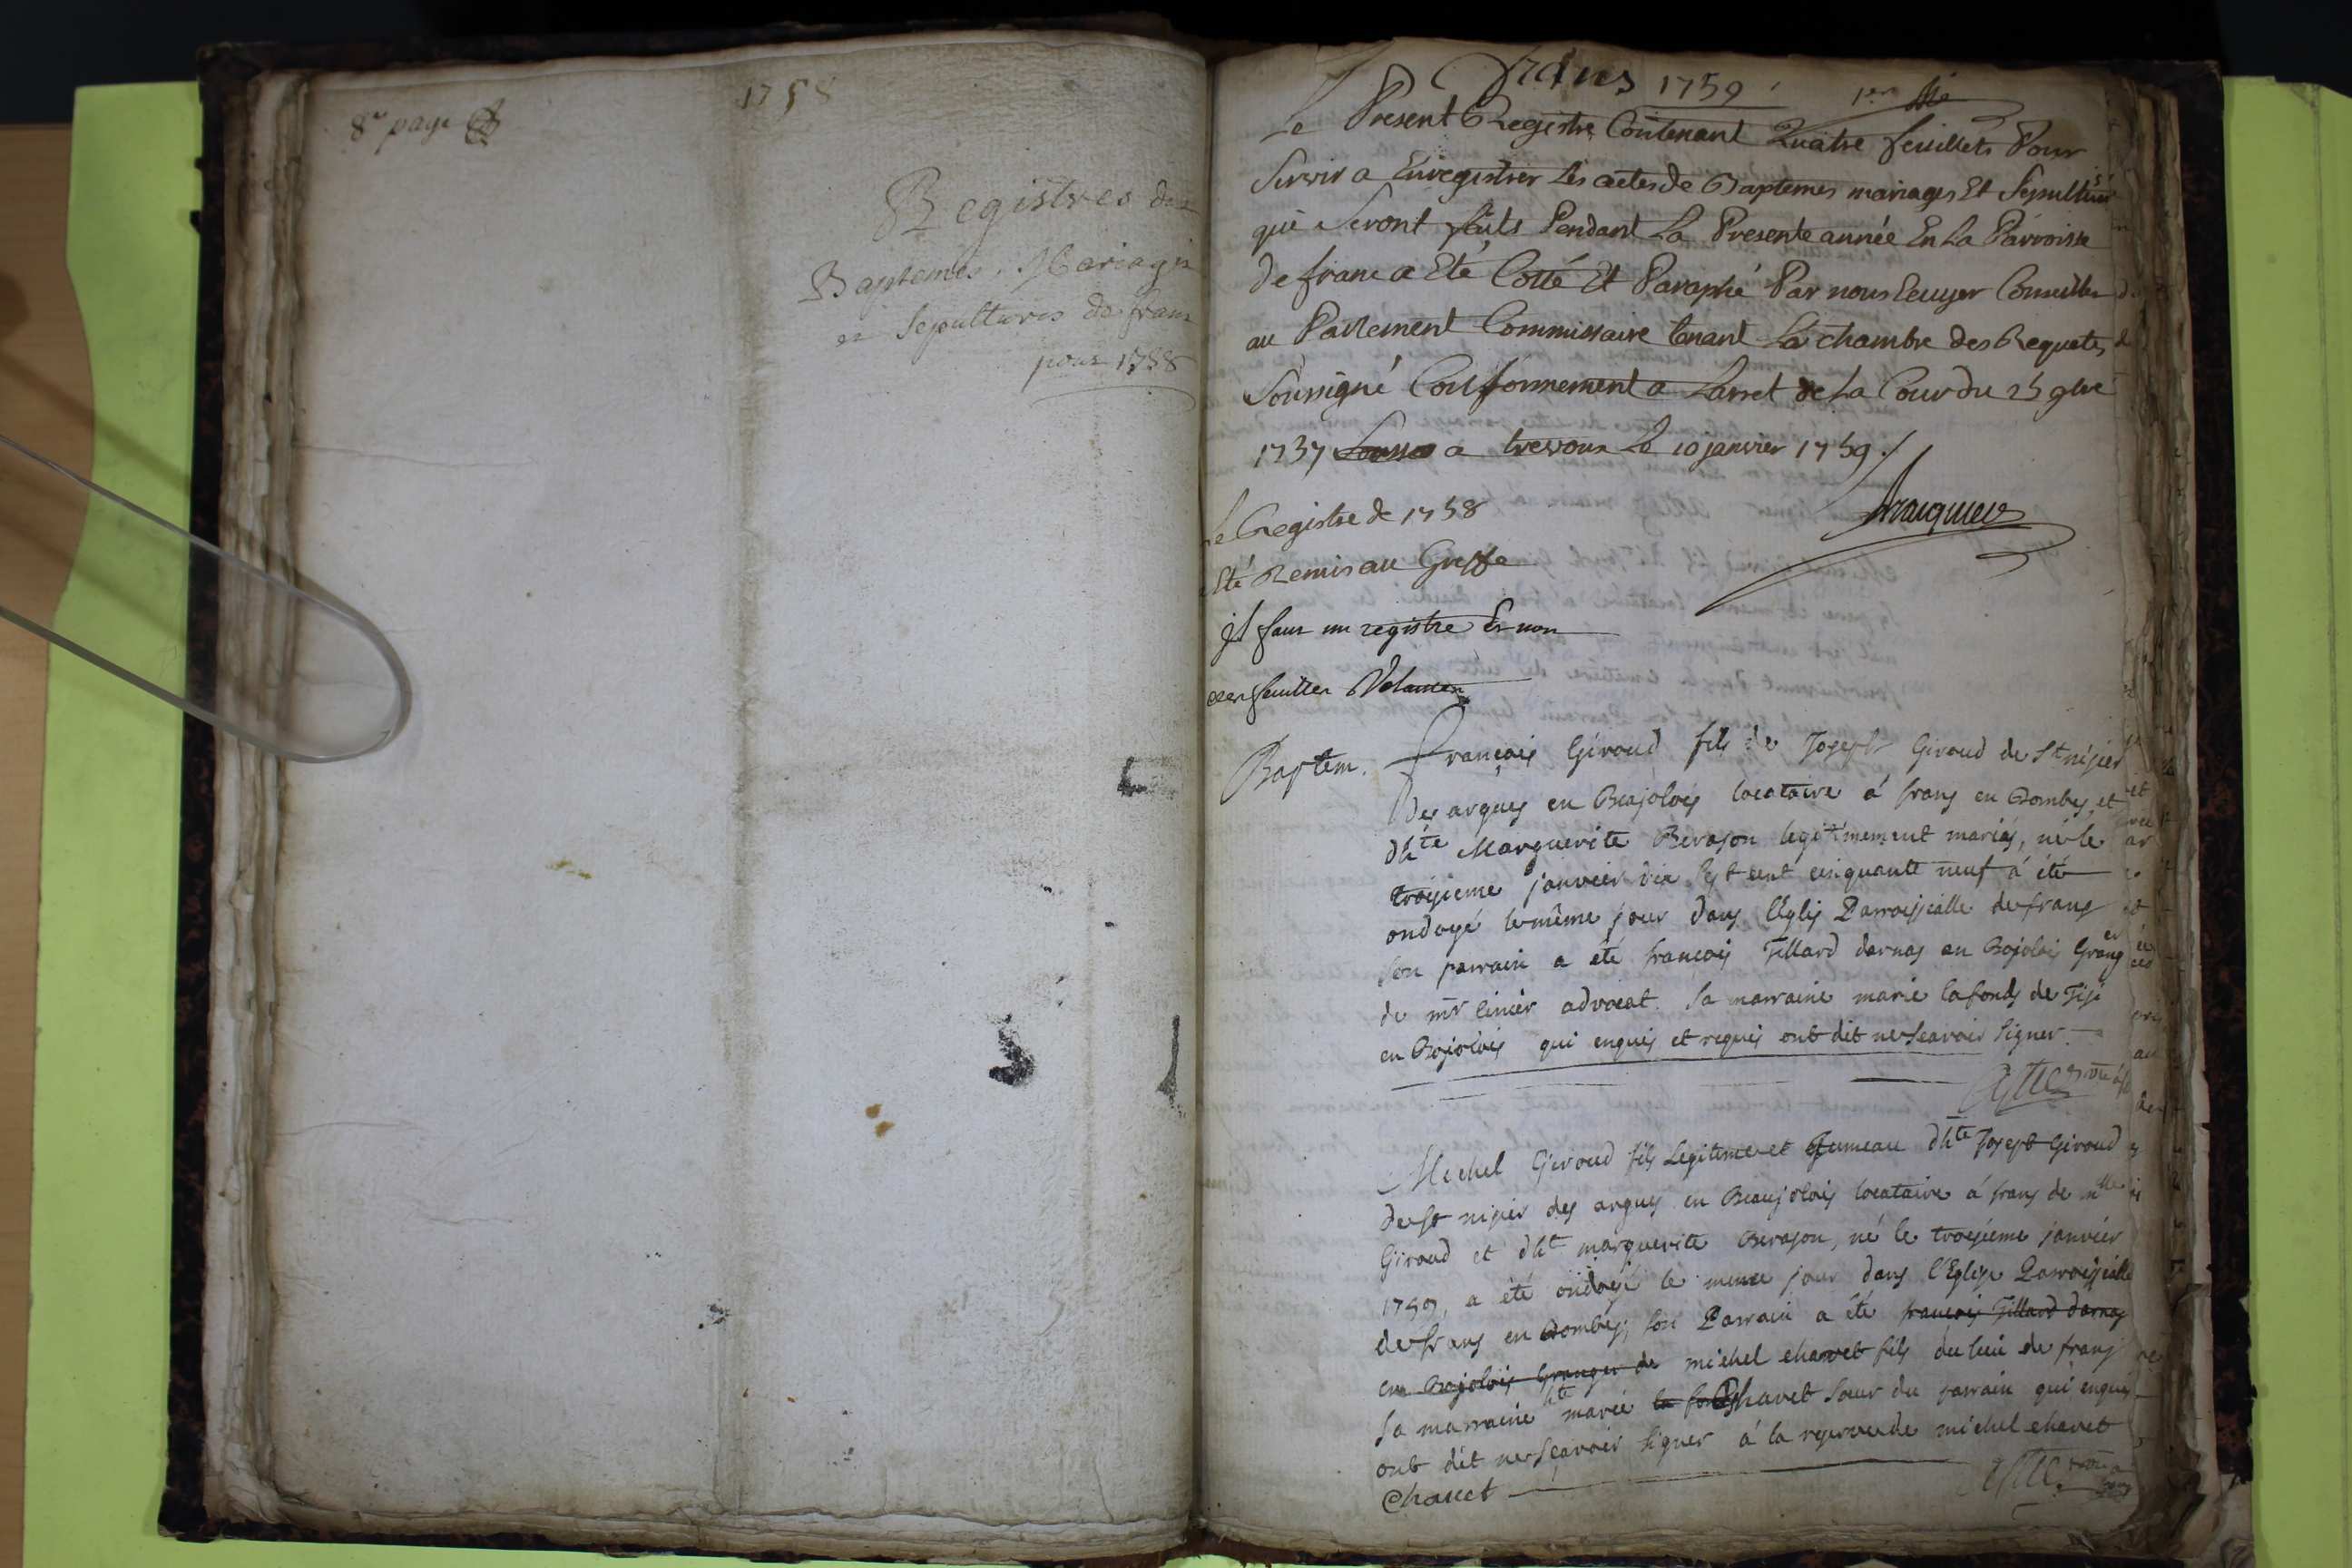 1758
8e page
Registres des
Baptemes, Mariages
et Sepultures de frans
pour 1758
frans 1759
1er
Le Present Registre Contenant Quatre feuillets Pour
Servir a Enregistrer Les actes de Baptemes mariages Et Sepultures
qui Seront faits Pendant La Presente année En La Parroisse
de frans a Eté Cotté Et Paraphé Par nous Ecuyer Conseiller
au Parlement Commissaire tenant La chambre des Requetes
Soussigné Conformement a Larret de La Cour du 25 9bre
1737 a trevoux Le 10 janvier 1759 ./.
Le Registre de 1758
Eté Remis au Greffe
jl faut un registre Et non
François Giroud fils de Joseph Giroud de St nisier
Baptem.
Des argues en Beajolois locataire á frans en Dombes, et
dhte Marguerite Berason legitimement mariés, né le
troisieme janvier dix sept cent cinquante neuf á été
ondoyé le même jour dans l'Eglise Parroissialle de frans
Son parrain a été francois Tillard darnas en Bojolois Granger
de mr advocat. Sa marraine marie lafonds de
en Bojolois qui enquis et requis ont dit ne scavoir signer.
Michel Giroud fils Legitime et Jumeau dhte Joseph Giroud
de St nisier des argues en Beaujolois locataire á frans de mlle
Giroud et dht marguerite Berason, né le troisième janvier
1759, a été ondoyé le meme jour dans l'Eglise Parroissialle
de frans en Dombes; son Parrain a été francois Tillard darnas
en Bojolois Granger de michel chavet fils du lieu de frans
Sa marraine hte marie la fonds Chavet sœur du parrain qui enquis
ont dit ne scavoir signer á la reserve de michel chavet
Chavet